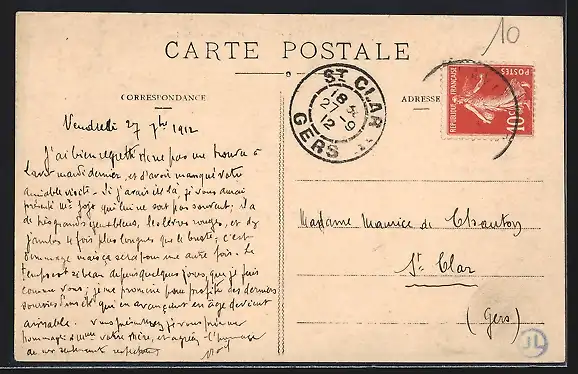 10
CARTE POSTALE
CORRESPONDANCE
ADRESSE
ST CLAR
18
27-9
12
GERS
REPUBLIQUE FRANÇAISE
POSTES
10
Vendredi 27 7bre 1912
J'ai bien regretté de ne pas me trouver à
mardi dernier, et d'avoir manqué votre
aimable visite. Si j'avais été là, je vous aurai
présenté qui lui ne sort pas souvent; il a
de très grands yeux bleus, les lèvres rouges, et des
jambes 4 fois plus longues que le buste; c'est
dommage mais ça sera pour une autre fois. Le
temps est si beau depuis quelques jours, que je fais
comme vous; je me promène pour profiter des derniers
sourires d'un été qui en avançant en âge devient
aimable. Vous je vous prie
hommages à Mme votre Mère, et agréez l'hommage
de mes sentiments respectueux
Madame Maurice de Chauton
St Clar
(Gers)
JL